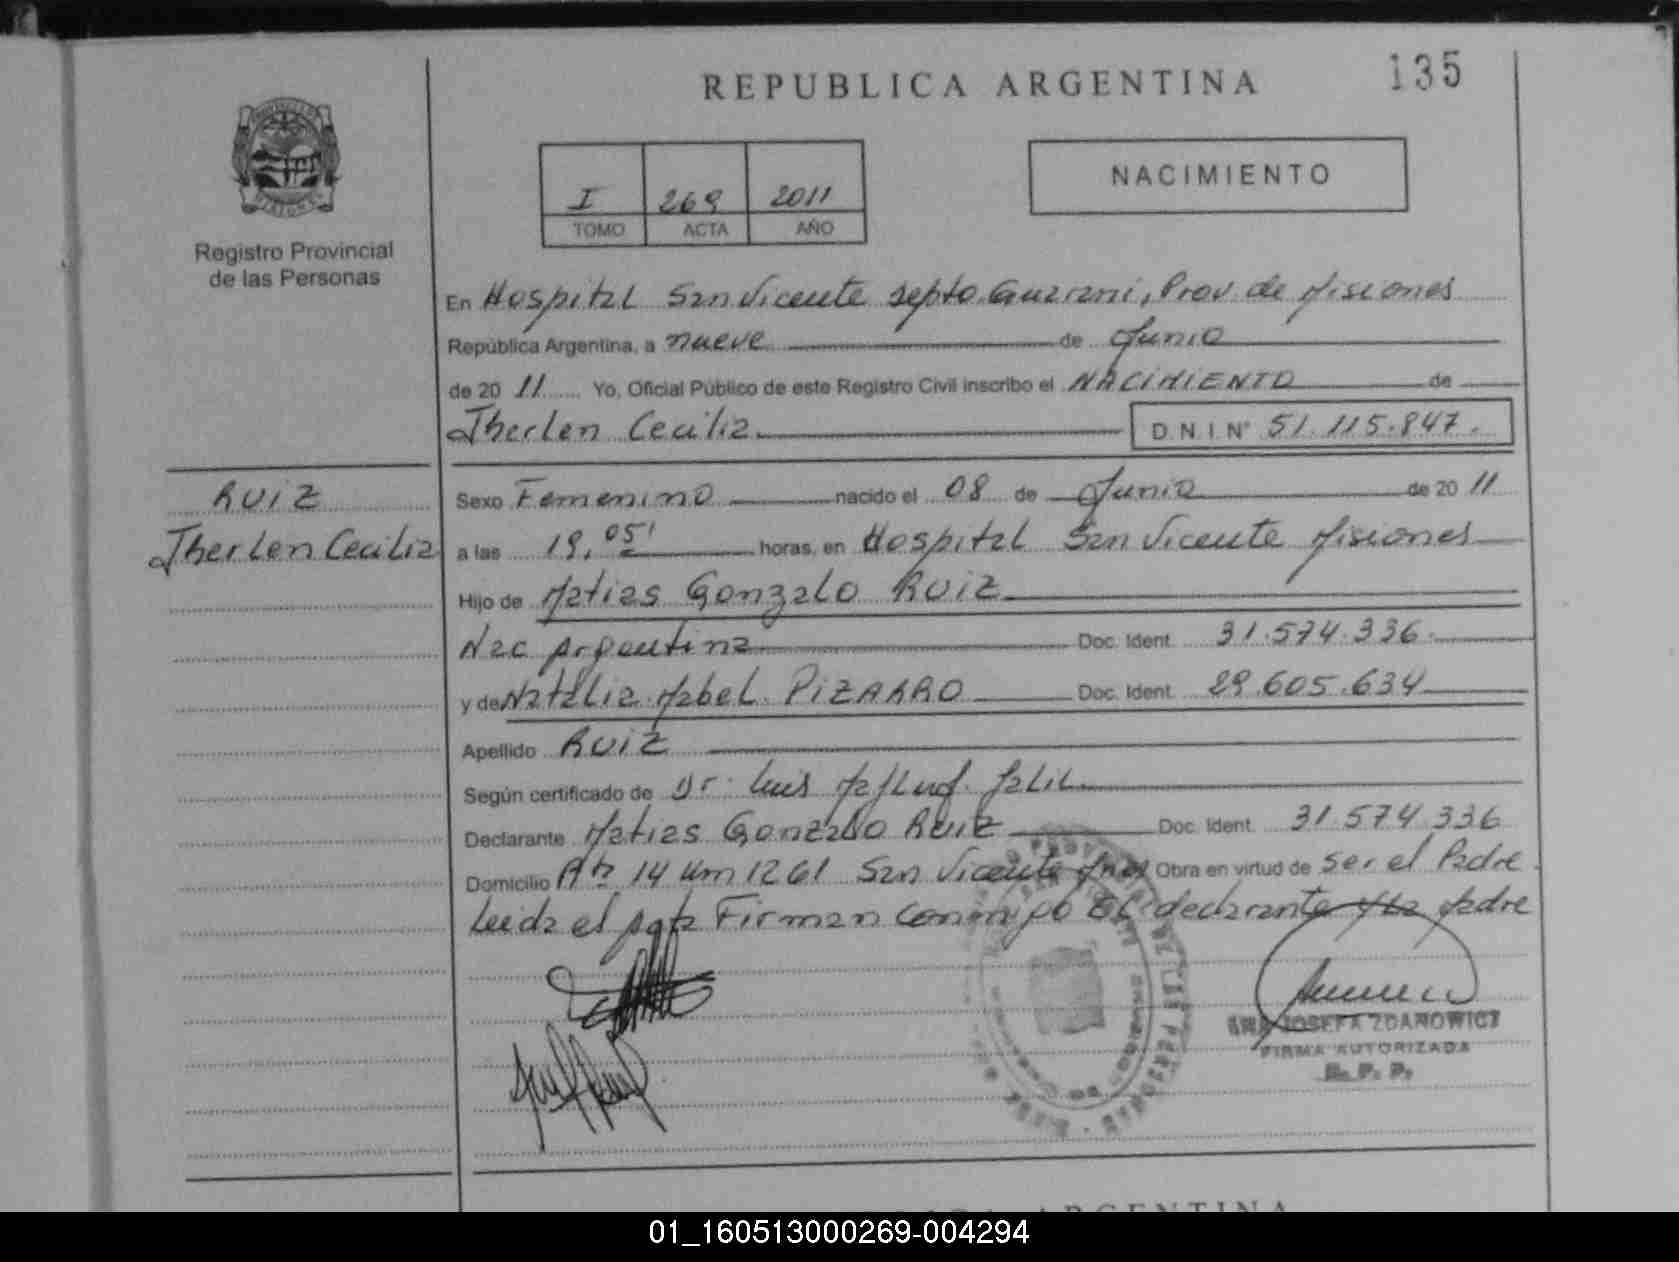 135
REPUBLICA ARGENTINA
NACIMIENTO
I 269 2011
TOMO ACTA AÑO
Registro Provincial
de las Personas
En Hospital San Vicente Depto Guarani, Prov. de Misiones
República Argentina, a nueve de Junio
de 20 11 Yo, Oficial Público de este Registro Civil inscribo el NACIMIENTO de
Therlen Cecilia D.N.I. N° 51.115.847.
RUIZ
Therlen Cecilia
Sexo Femenino nacido el 08 de Junio de 20 11
a las 19,05' horas, en Hospital San Vicente Misiones
Hijo de Matias Gonzalo RUIZ
Nac Argentina Doc. Ident. 31.574.336.
y de Natalia Mabel PIZARRO Doc. Ident. 29.605.634
Apellido RUIZ
Según certificado de Dr. Luis Jalil
Declarante Matias Gonzalo RUIZ Doc. Ident. 31.574.336
Domicilio Rta 14 Km 1261 San Vicente Mnes Obra en virtud de ser el Padre
Leida el acta Firman conmigo el declarante y la Madre
SRA JOSEFA ZDANOWICZ
FIRMA AUTORIZADA
R. P. P.
REPUBLICA ARGENTINA
01_160513000269-004294